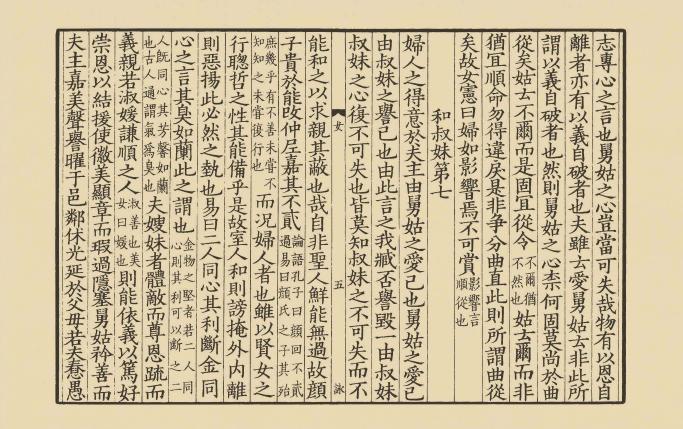 志專心之言也舅姑之心豈當可失哉物有以恩自
離者亦有以義自破者也夫雖云愛舅姑云非此所
謂以義自破者也然則舅姑之心柰何固莫尚於曲
從矣姑云不爾而是固宜從令不爾猶不然也姑云爾而非
猶宜順命勿得違戾是非爭分曲直此則所謂曲從
矣故女憲曰婦如影響焉不可賞影響言順從也
和叔妹第七
婦人之得意於夫主由舅姑之愛已也舅姑之愛已
由叔妹之譽已也由此言之我臧否譽毀一由叔妹
叔妹之心復不可失也皆莫知叔妹之不可失而不
女 五 詠
能和之以求親其蔽也哉自非聖人鮮能無過故顏
子貴於能改仲尼嘉其不貳論語孔子曰顏回不貳過易曰顏氏之子其殆
庶幾乎有不善未嘗不知知之未嘗復行也而況婦人者也雖以賢女之
行聰哲之性其能備乎是故室人和則謗掩外內離
則惡揚此必然之埶也易曰二人同心其利斷金同
心之言其臭如蘭此之謂也金物之堅者若二人同心則其利可以斷之二
人既同心其芳馨如蘭也古人通謂氣爲臭也夫嫂妹者體敵而尊恩疏而
義親若淑媛謙順之人淑善也美女曰媛也則能依義以篤好
崇恩以結援使徽美顯章而瑕過隱塞舅姑矜善而
夫主嘉美聲譽曜于邑鄰休光延於父母若夫惷愚